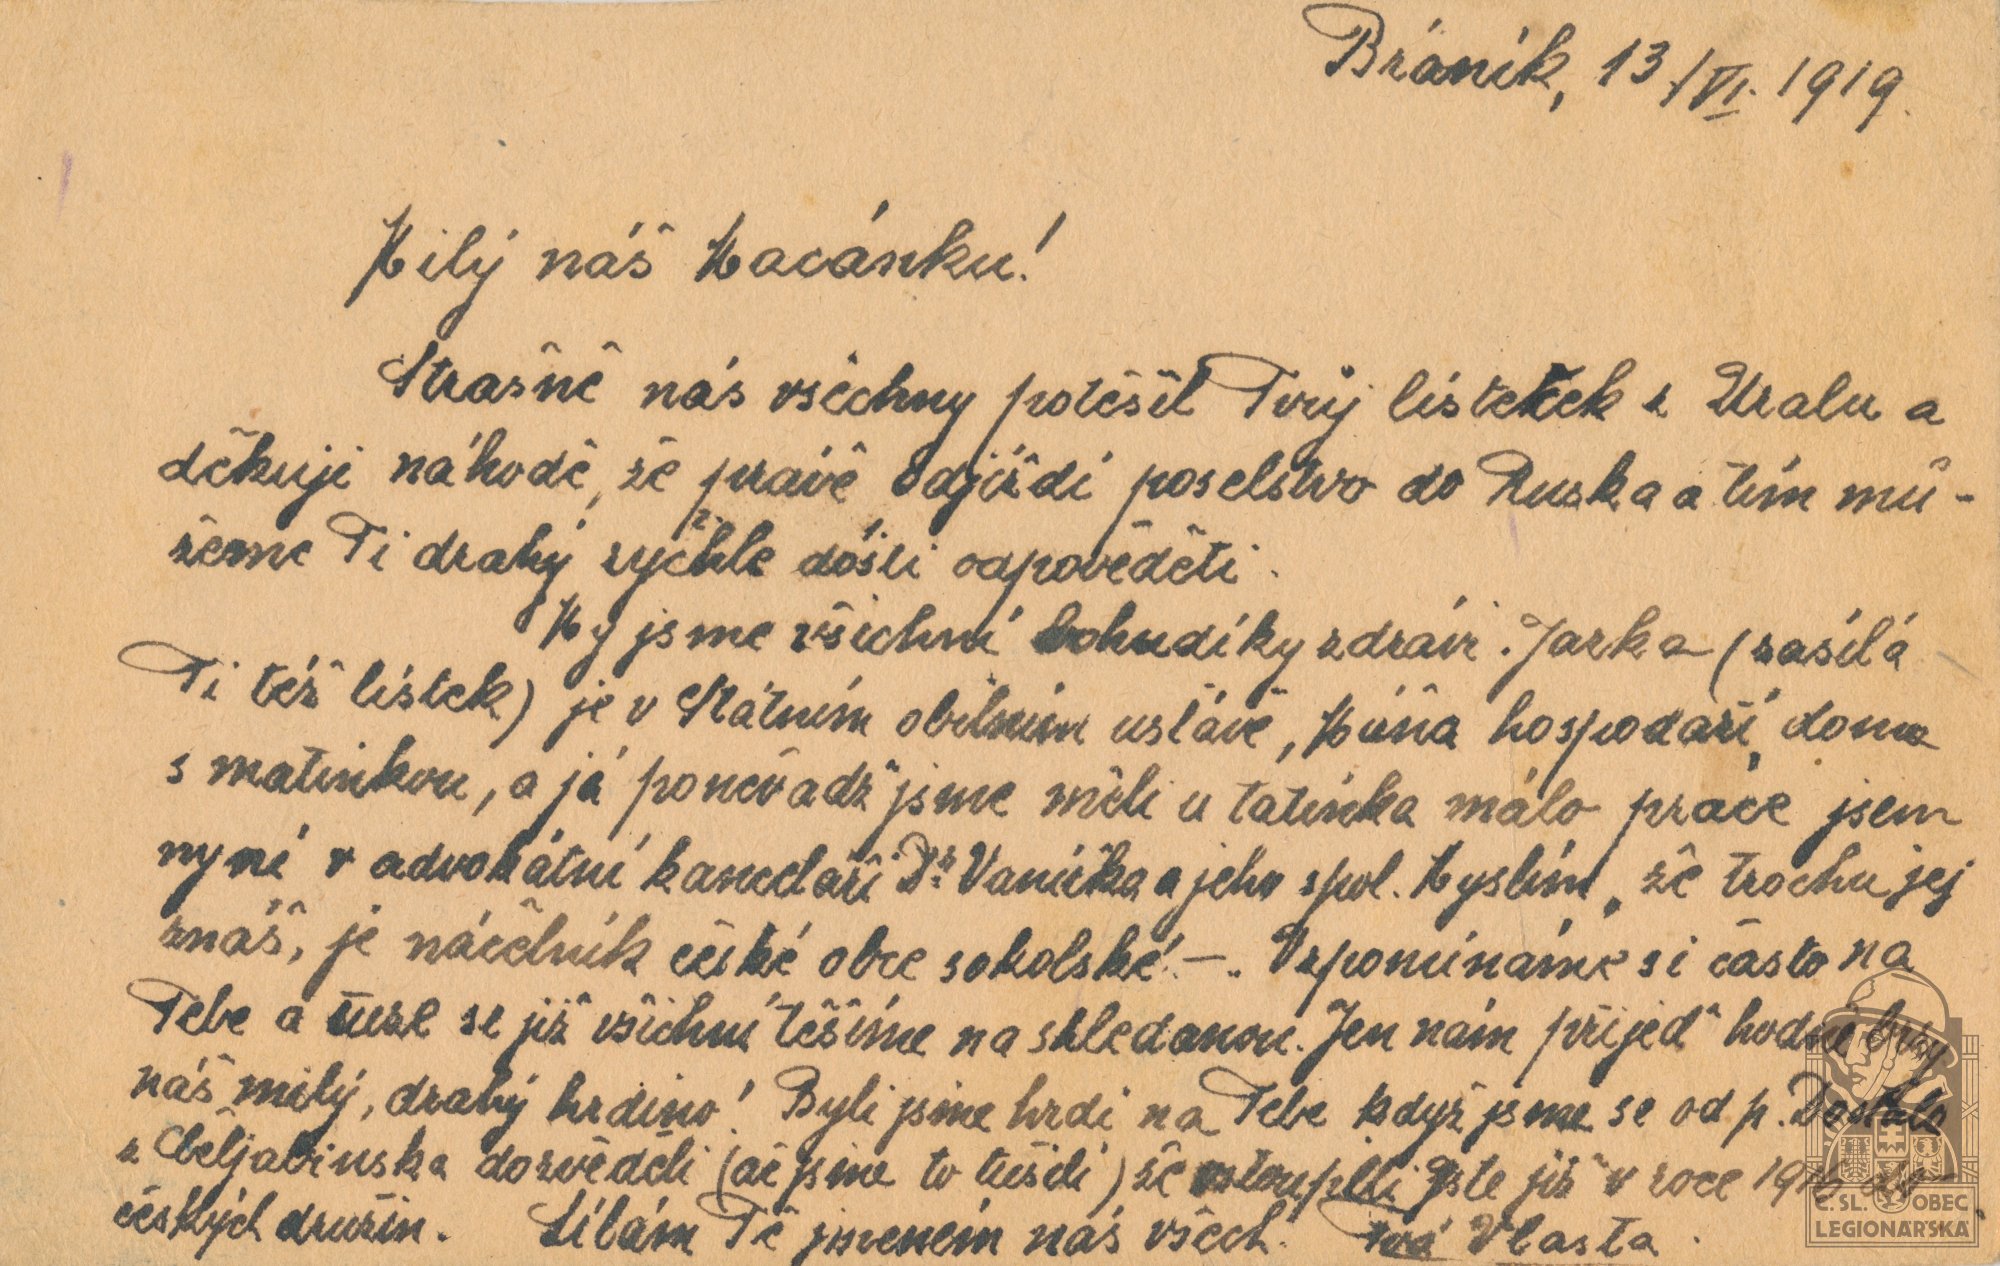 Bráník, 13/VI. 1919.
Milý náš Macánku!
Strašně nás všechny potěšil Tvůj lísteček z Uralu a
děkuji náhodě, že právě odjíždí poselstvo do Ruska a tím mů-
žeme Ti drahý rychle dosti odpověděti.
My jsme všichni bohudíky zdrávi. Jarka (zasílá
Ti též lístek) je v Státním obilním ústavě, Máňa hospodaří doma
s matinkou, a já poněvadž jsme měli u tatínka málo práce jsem
nyní v advokátní kanceláři Dr. Vaníčka a jeho spol. Myslím, že trochu jej
znáš, je náčelník české obce sokolské. – Vzpomínáme si často na
Tebe a tuze se již všichni těšíme na shledanou. Jen nám přijeď hodně brzy
náš milý, drahý hrdino! Byli jsme hrdi na Tebe když jsme se od p. Dostála
z Čeljabinska dozvěděli (ač jsme to tušili) že vstoupili jste již v roce 1916 do
českých družin. Líbám Tě jmenem nás všech. Tvá Vlasta.
Č. SL. OBEC
LEGIONÁŘSKÁ